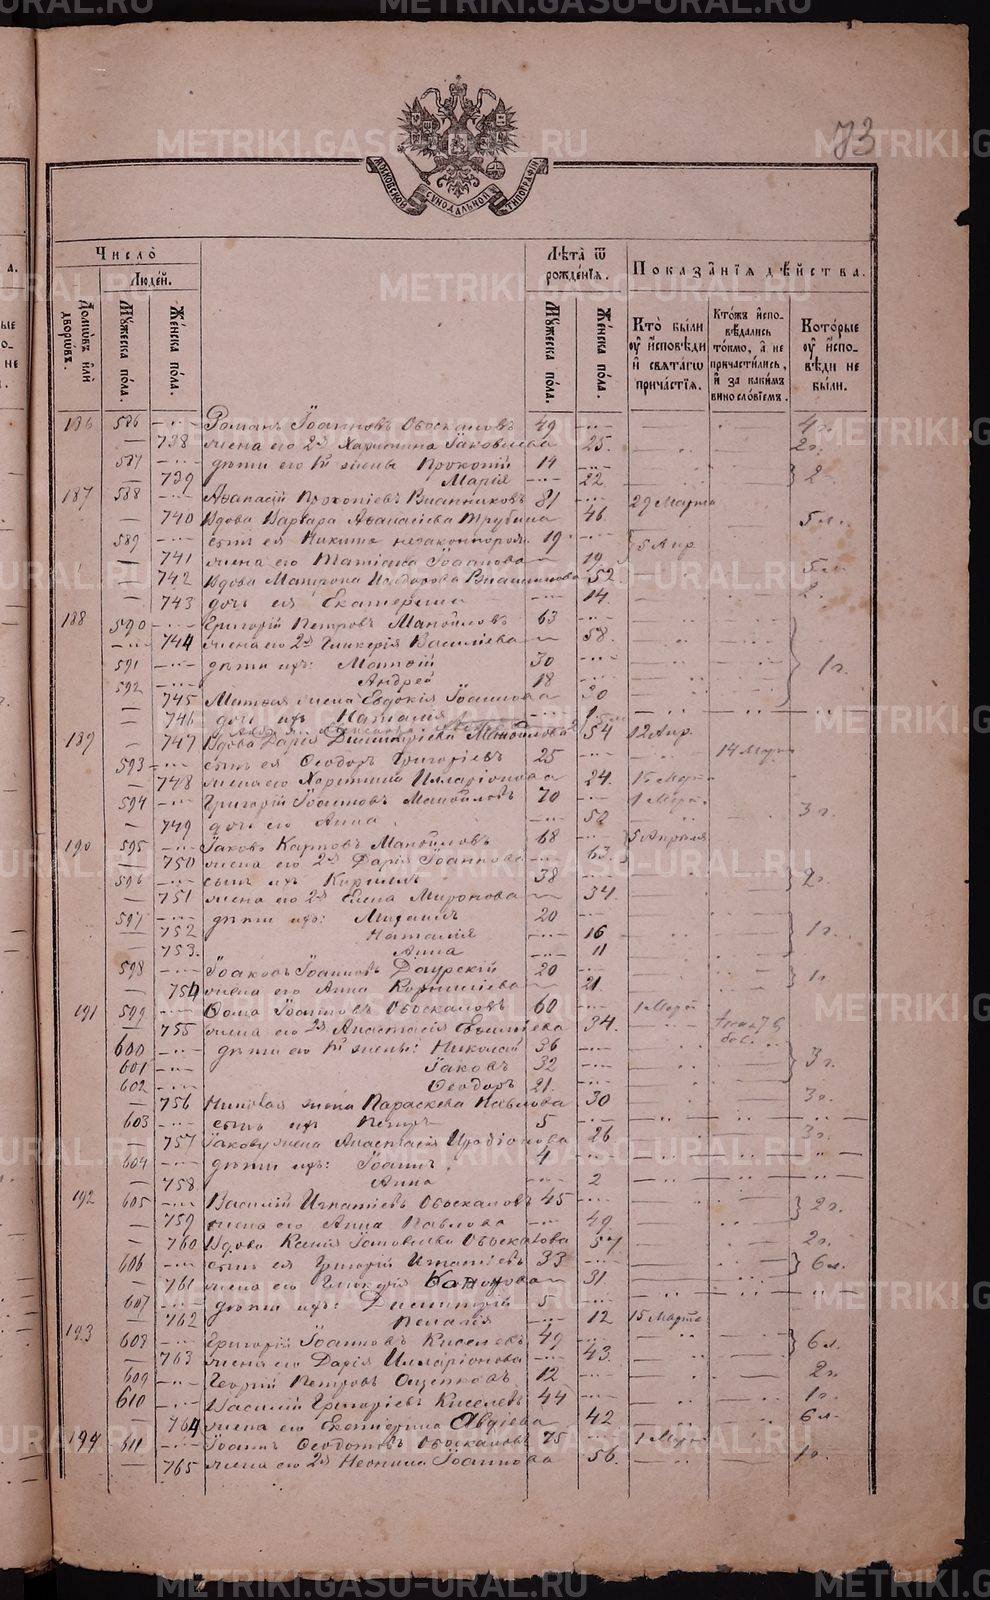 73
МОСКОВСКОЙ СѴНОДАЛЬНОЙ ТИПОГРАФІИ
Число̀ Лѣта̀ ѿ рожде́нїѧ. Показа̂нїѧ дѣ́йства.
Люде́й.
Домѡ́въ и҆лѝ дворѡ́въ. Мꙋ́жеска по́ла. Же́нска по́ла. Мꙋ́жеска по́ла. Же́нска по́ла. Кто̀ бы́ли оу҆ и҆́сповѣди и҆ свѧта́гѡ прича́стїѧ. Кто́жъ и҆спо-вѣ́дались то́кмо, а҆ не причасти́лись, и҆ за каки́мъ винослѡ́вїемъ. Кото́рые оу҆ и҆́спо-вѣди не бы́ли.
186 586 Романъ Іоанновъ Обоскаловъ 49 4 г.
738 жена его 2я Харитина Іаковлева 25. 2 г.
587 дѣти его 1й жены Прокопій 14
739 Марія 22 2
187 588 Аѳанасій Прокопіевъ 81 29 Марта
740 Вдова Варвара Аѳанасіева Трубина 46 5 л.
589 сынъ ея Никита незаконнорож. 19 5 Апр
741 жена его Татіана Іоаннова 19
742 Вдова Матрона 52 5 л.
743 дочь ея Екатерина 14. 2.
188 590 Григорій Петровъ Манойловъ 63
744 жена его 2я Гликерія Василіева 58.
591 дѣти ихъ: Матѳій 30 1 г.
592 Андрей 18
745 Матѳея жена Евдокія Іоаннова 30
746 дочь ихъ Наталія
189 747 Вдова Дарія Димитріева Манойлова 54 12 Апр
593 сынъ ея Ѳеодоръ Григоріевъ 25 14 Мар
748 жена его Харитина Илларіонова 24. 15 Мар
594 Григорій Іоанновъ Манойловъ 70 1 Март
749 дочь его Анна 52 3 г.
190 595 Іаковъ Карповъ Манойловъ 68 5 Апрѣля
750 жена его 2я Дарія Іоаннова 63.
596 сынъ ихъ Кириллъ 38 2 г.
751 жена его 2я Елена Миронова 34.
597 дѣти ихъ: Михаилъ 20
752 Наталія 16 1 г.
753. Анна 11
598 Іоаковъ Іоанновъ Даурскій 20
754 жена его Анна Корнилиева 21. 1 г
191 599 Ѳома Іоанновъ Обоскаловъ 60 1 Март
755 жена его 2я Анастасія 34.
600 дѣти его 1й жены: Николай 36
601 Іаковъ 32 3 г.
602 Ѳеодоръ 21.
756 жена Параскева Павлова 30 3 г.
603 сынъ ихъ Петръ 5
757 Іакову жена Анастасія Иродіонова 26 3 г.
604 дѣти ихъ: Іоаннъ. 4
758 Анна 2
192 605 Василій Игнатіевъ Обоскаловъ 45 2 г.
759 жена его Анна Павлова 49.
760 Вдова Ксенія Обоскалова 57 2 г.
606 сынъ ея Григорій Игнатіевъ 33 6 л.
761 жена его Гликерія 31.
607 дѣти ихъ: Димитрій 5
762 Пелагія 12 15 Марта
193 608 Григорій Іоанновъ Киселевъ 49 6 л.
763 жена его Дарія Илларіонова 43.
609 Георгій Петровъ 12 2 г.
610 Василій Григоріевъ Киселевъ 44 1 г.
764 жена его Екатерина Авдіева 42 6 л.
194 611 Іоаннъ Ѳеодотовъ Обоскаловъ 75 1 Мар
765 жена его 2я Неонила Іоаннова 56. 1 г